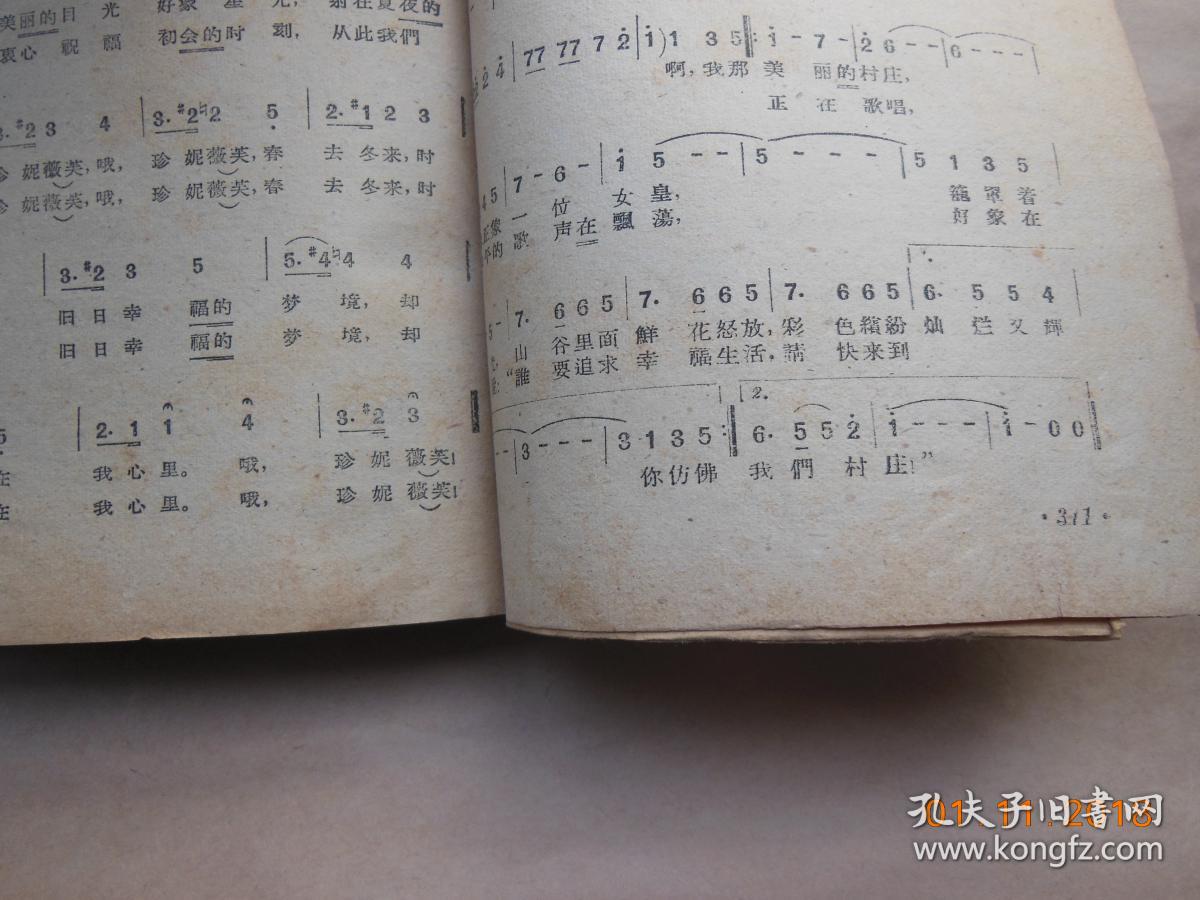 美丽的目光 好象星光，射在夏夜的
衷心祝福 初会的时刻，从此我們
3. #2 3 4 | 3. #2 ♮2 5 | 2. #1 2 3
妮薇芙，哦，珍妮薇芙，春去冬来，时
妮薇芙，哦，珍妮薇芙，春去冬来，时
3. #2 3 5 | 5. #4 ♮4 4
旧日幸福的梦境，却
旧日幸福的梦境，却
2. 1 1 4 | 3. #2 3
我心里。哦，珍妮薇芙！
我心里。哦，珍妮薇芙！
77 77 7 2 | 1) 1 3 5 |: 1 - 7 - | 2 6 - - | 6 - - -
啊，我那美丽的村庄，
正在歌唱，
4 5 | 7 - 6 - | 1 5 - - | 5 - - - | 5 1 3 5
象一位女皇，籠罩着
的歌声在飄荡，好象在
7. 6 6 5 | 7. 6 6 5 | 7. 6 6 5 | 6. 5 5 4
山谷里面鮮花怒放，彩色繽紛灿烂又輝
“誰要追求幸福生活，請快来到
- - - | 3 - - - | 3 1 3 5 :| 2. 6. 5 5 2 | 1 - - - | 1 - 0 0
你仿佛 我們村庄！”
·311·
01.11.2018
孔夫子旧书网
www.kongfz.com